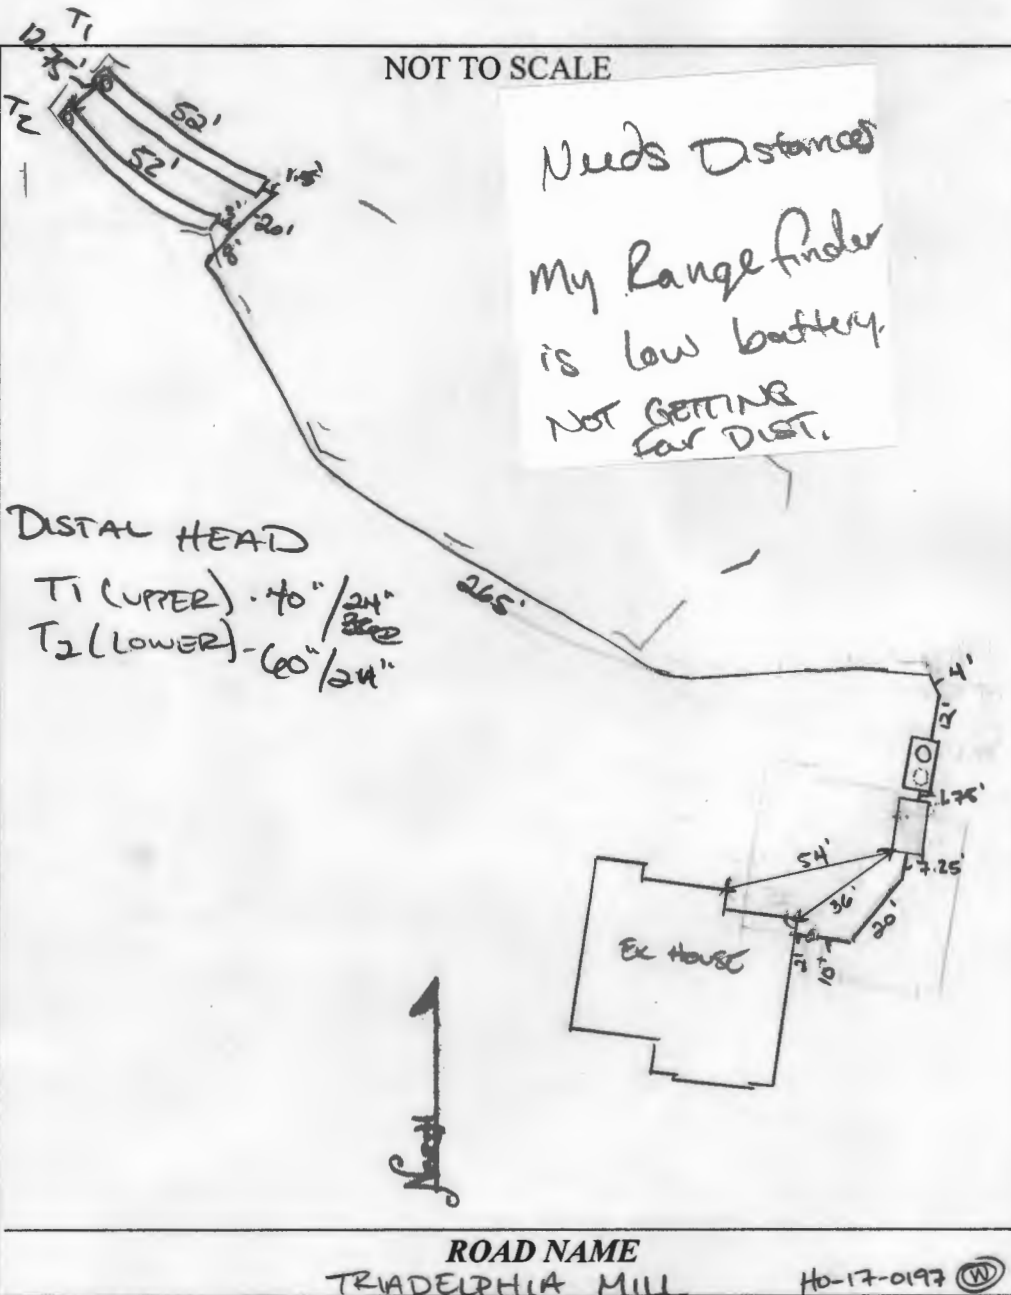 T1
12.75'
NOT TO SCALE
T2
52'
52'
1.5'
3'
20'
8'
Needs Distances
My Range finder
is low battery.
NOT GETTING
Far DIST.
DISTAL HEAD
T1 (UPPER) - 40"/24"
T2 (LOWER) - 60"/24"
265'
4'
12'
1.75'
54'
7.25'
36'
20'
EX HOUSE
2'
10'
North
ROAD NAME
TRIADELPHIA MILL
HO-17-0197 W